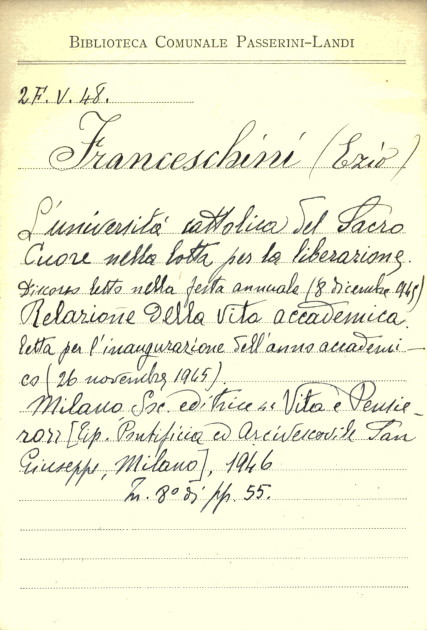 BIBLIOTECA COMUNALE PASSERINI-LANDI
2F. V. 48.
Franceschini (Ezio)
L'università cattolica del Sacro
Cuore nella lotta per la liberazione.
Discorso letto nella festa annuale (8 dicembre 1945)
Relazione della vita accademica.
letta per l'inaugurazione dell'anno accademi-
co (26 novembre 1945).
Milano Soc. editrice "Vita e Pensie-
ro" [Tip. Pontificia ed Arcivescovile San
Giuseppe, Milano], 1946
In. 8° di pp. 55.